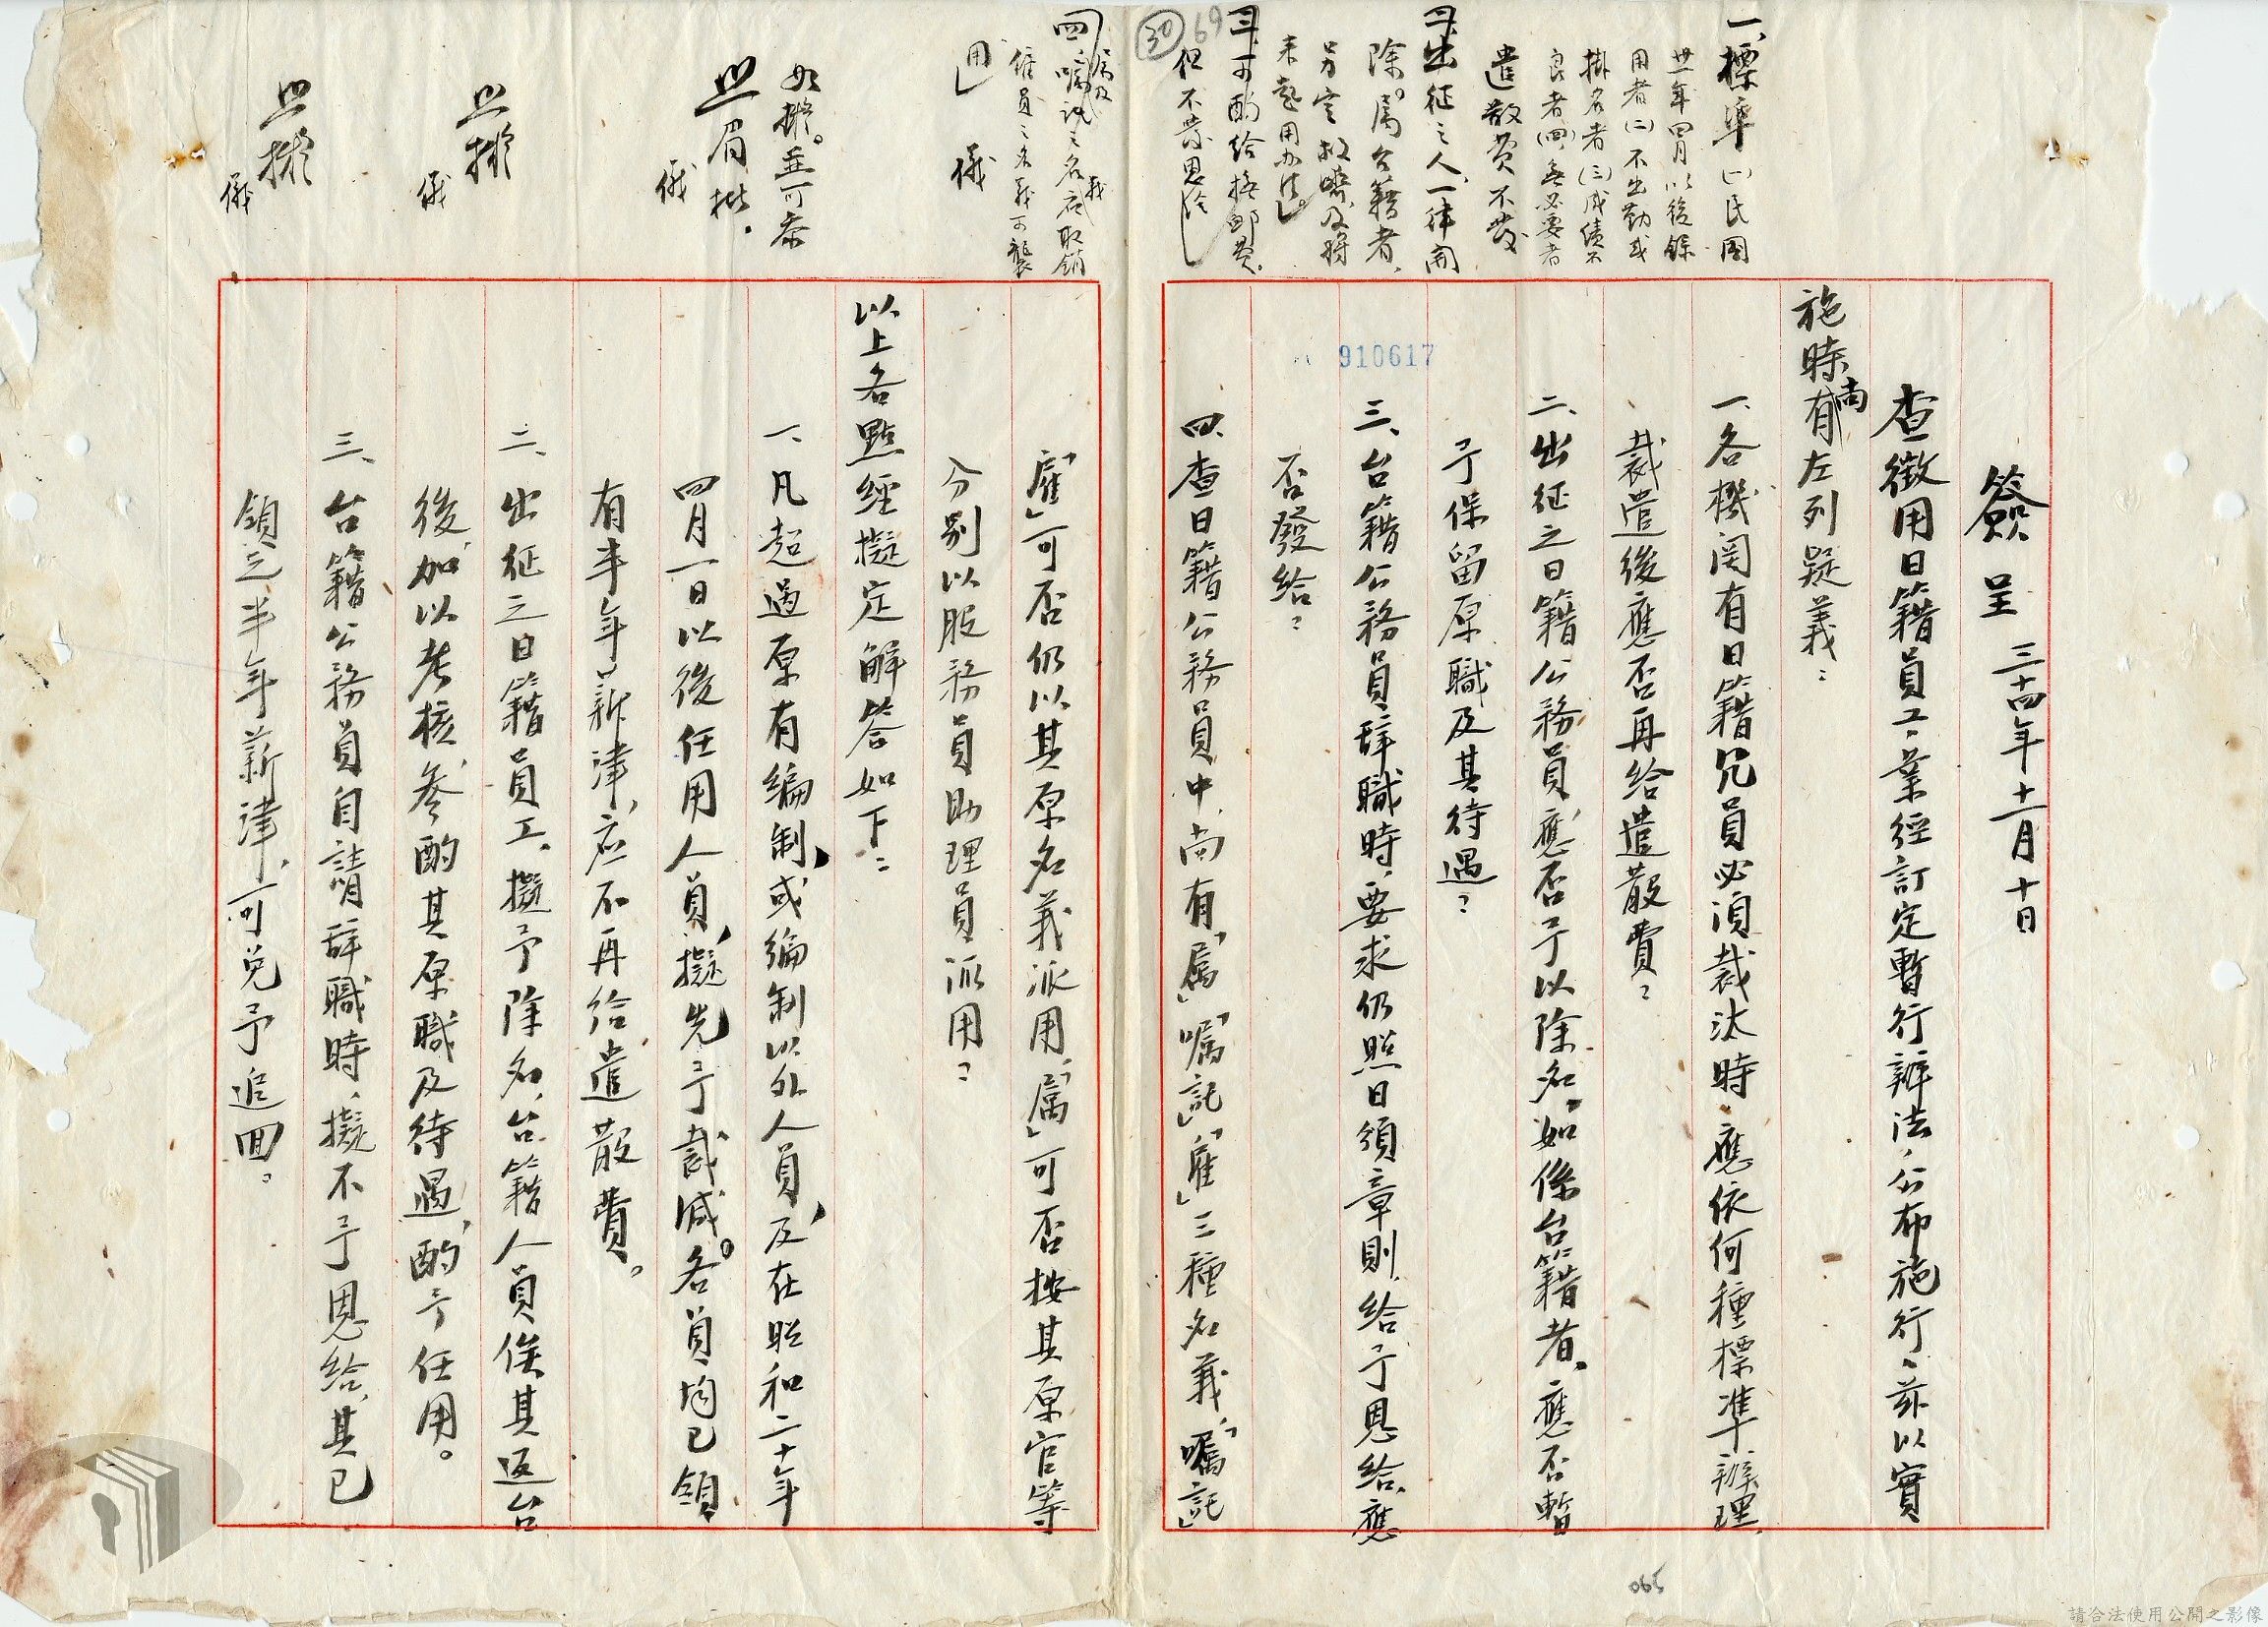 簽呈 三十四年十二月十日
查徵用日籍員工、業經訂定暫行辦法，公布施行，茲以實
施時尚有左列疑義：
一、各機関有日籍冗員必須裁汰時，應依何種標準辦理，
裁遣後應否再給遣散費？
二、出征之日籍公務員應否予以除名，如係台籍者，應否暫
予保留原職及其待遇？
三、台籍公務員辞職時，要求仍照日頒章則，給予恩給，應
否發給？
四、查日籍公務員中，尚有「属」「嘱託」「雇」三種名義，「嘱託」
「雇」可否仍以其原名義派用，「属」可否按其原官等
分別以股務員助理員派用？
以上各點經擬定解答如下：
一、凡超過原有編制，或編制以外人員，及在昭和二十年
四月一日以後任用人員，擬先予裁減。各員均已領
有半年薪津，应不再給遣散費。
二、出征之日籍員工，擬予除名，台籍人員俟其返台
後，加以考核，参酌其原職及待遇，酌予任用。
三、台籍公務員自請辞職時，擬不予恩給，其已
領之半年薪津，可免予追回。
一、標準(一)民國
卅一年四月以後錄
用者(二)不出勤或
掛名者(三)成績不
良者(四)無必要者
遣散費不發
二、出征之人，一律開
除。属台籍者，
另定救濟及將
來起用办法。
三、可酌給撫卹費，
但不發恩給
四、嘱託之名義应取銷
属及
雇員之名義可襲
用
儀
如擬。並可参
照眉批。
儀
照擬
儀
照擬
儀
30
69
910617
065
請合法使用公開之影像